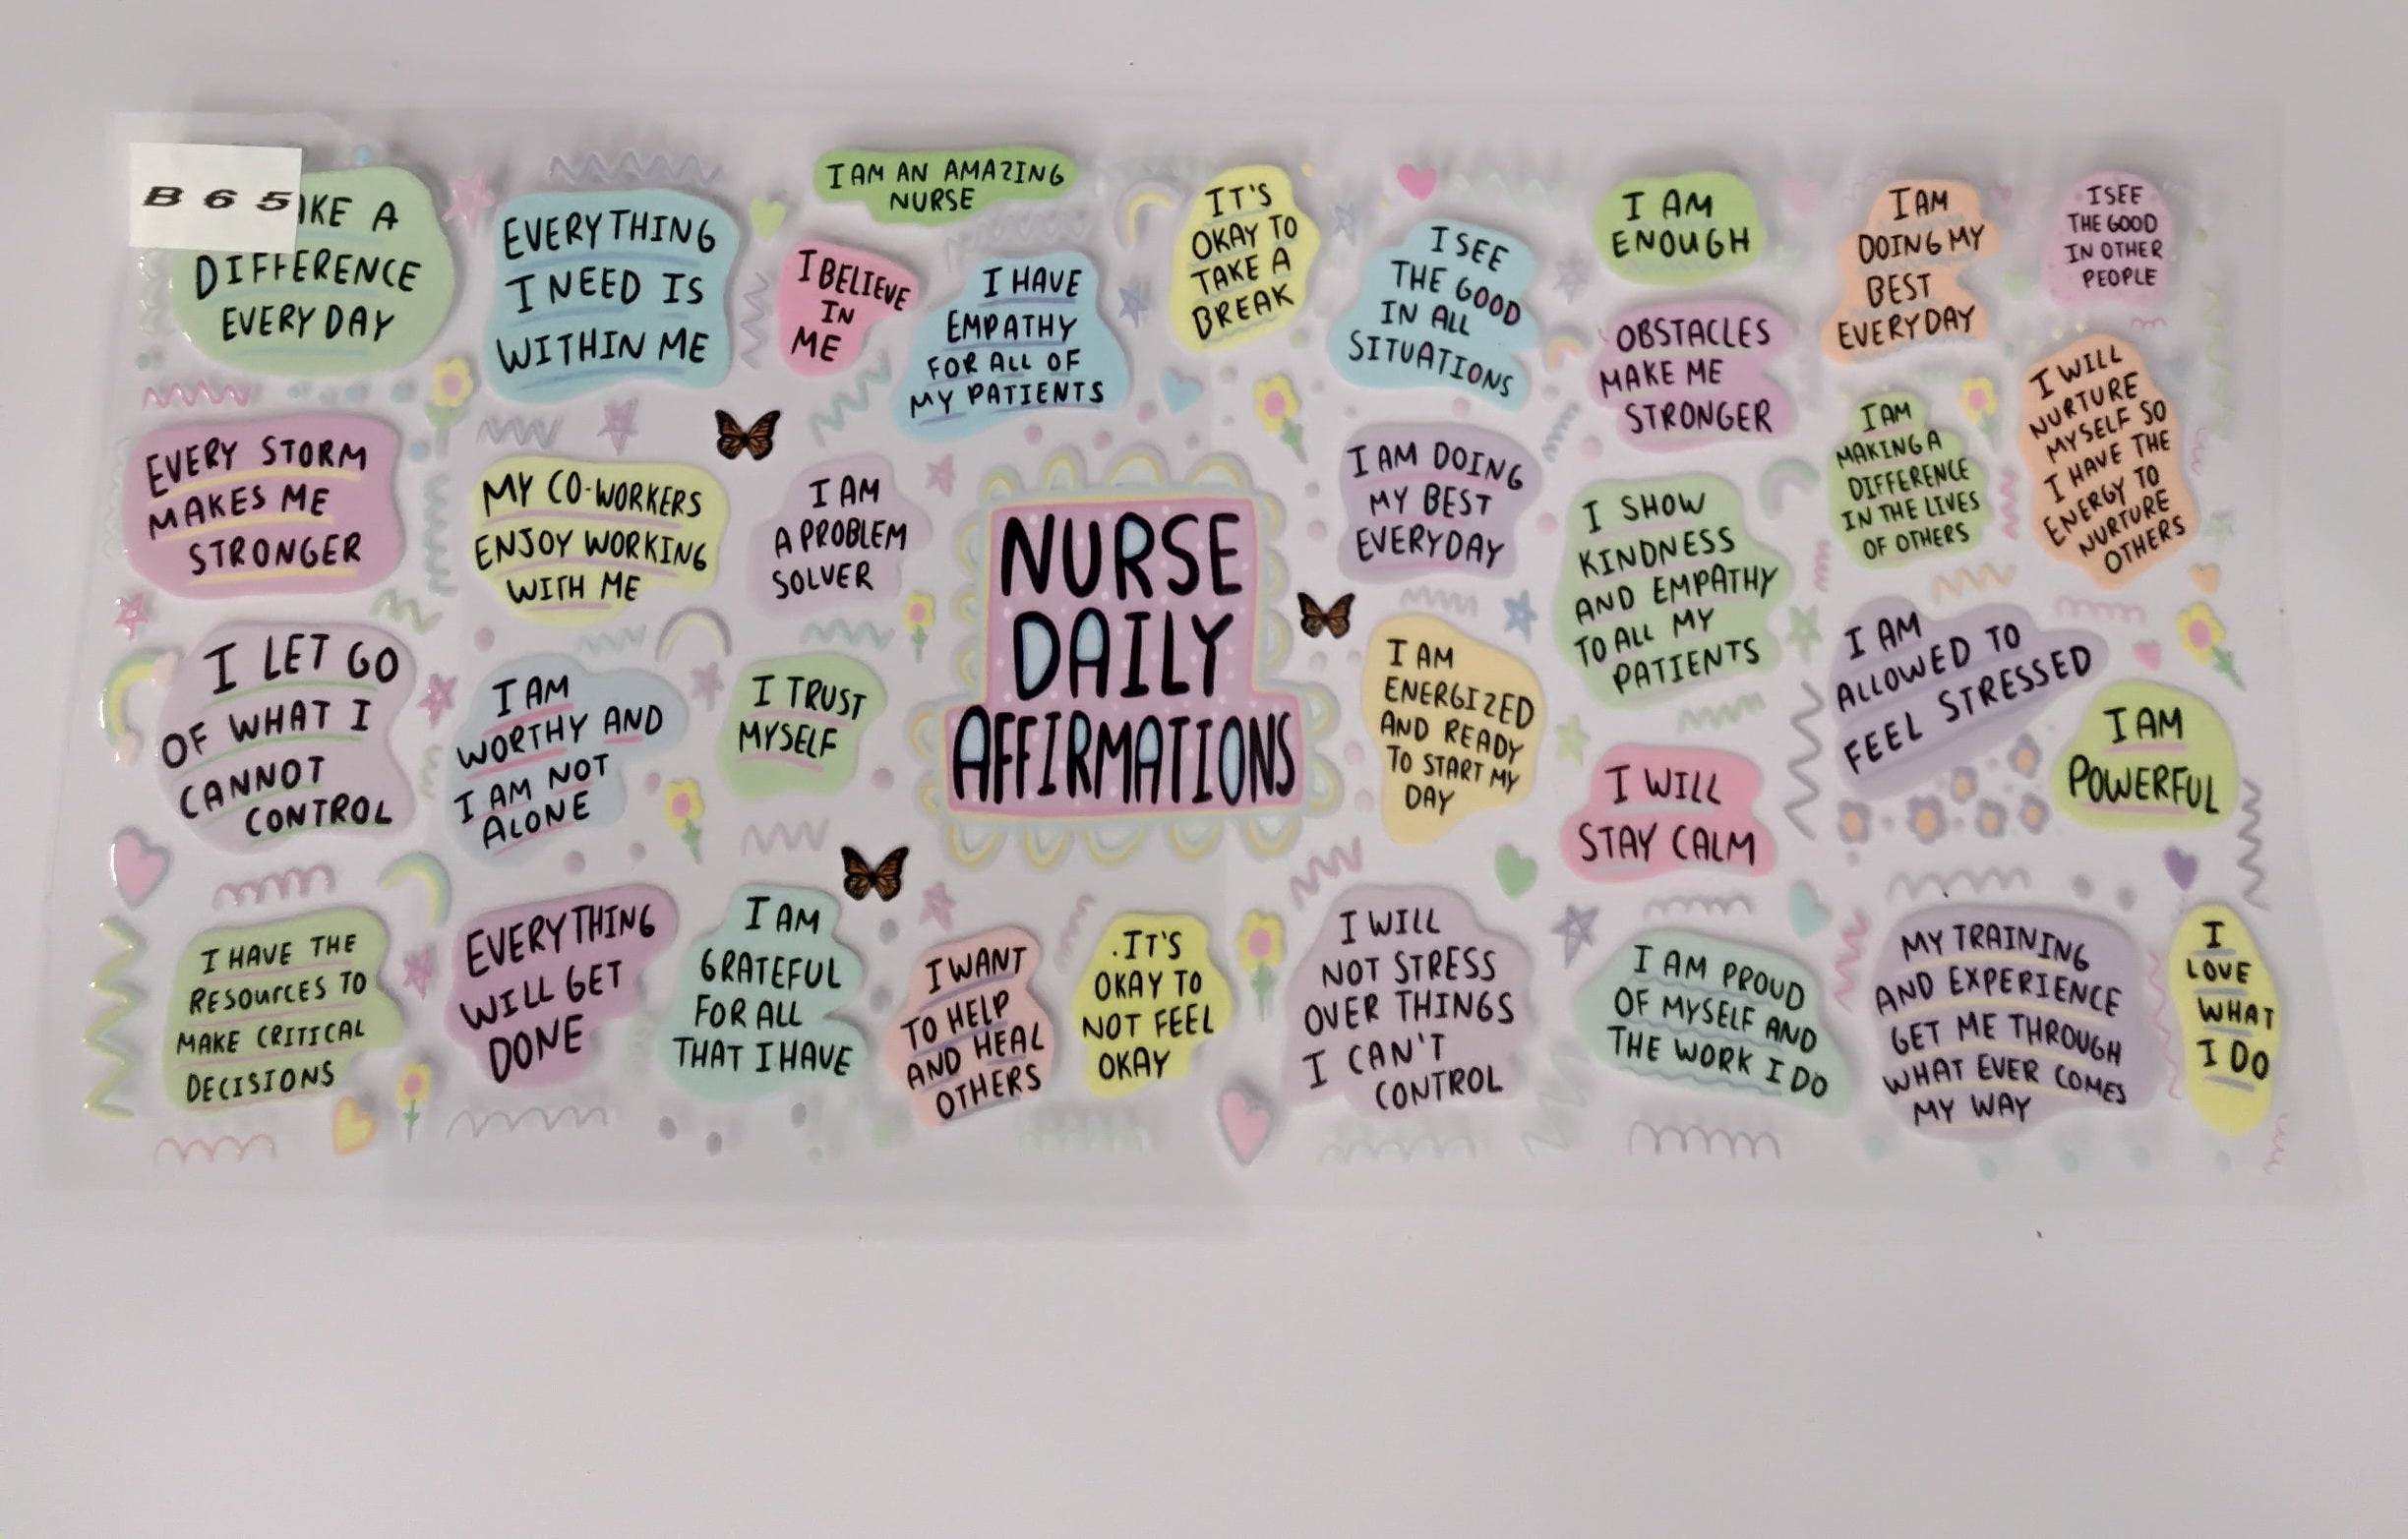 B 65
KE A
DIFFERENCE
EVERY DAY
EVERYTHING
I NEED IS
WITHIN ME
I AM AN AMAZING
NURSE
I BELIEVE
IN
ME
I HAVE
EMPATHY
FOR ALL OF
MY PATIENTS
IT'S
OKAY TO
TAKE A
BREAK
I SEE
THE GOOD
IN ALL
SITUATIONS
I AM
ENOUGH
I AM
DOING MY
BEST
EVERYDAY
I SEE
THE GOOD
IN OTHER
PEOPLE
OBSTACLES
MAKE ME
STRONGER
I WILL
NURTURE
MYSELF SO
I HAVE THE
ENERGY TO
NURTURE
OTHERS
EVERY STORM
MAKES ME
STRONGER
MY CO-WORKERS
ENJOY WORKING
WITH ME
I AM
A PROBLEM
SOLVER
NURSE
DAILY
AFFIRMATIONS
I AM DOING
MY BEST
EVERYDAY
I SHOW
KINDNESS
AND EMPATHY
TO ALL MY
PATIENTS
I AM
MAKING A
DIFFERENCE
IN THE LIVES
OF OTHERS
I LET GO
OF WHAT I
CANNOT
CONTROL
I AM
WORTHY AND
I AM NOT
ALONE
I TRUST
MYSELF
I AM
ENERGIZED
AND READY
TO START MY
DAY
I AM
ALLOWED TO
FEEL STRESSED
I WILL
STAY CALM
I AM
POWERFUL
I HAVE THE
RESOURCES TO
MAKE CRITICAL
DECISIONS
EVERYTHING
WILL GET
DONE
I AM
GRATEFUL
FOR ALL
THAT I HAVE
I WANT
TO HELP
AND HEAL
OTHERS
IT'S
OKAY TO
NOT FEEL
OKAY
I WILL
NOT STRESS
OVER THINGS
I CAN'T
CONTROL
I AM PROUD
OF MYSELF AND
THE WORK I DO
MY TRAINING
AND EXPERIENCE
GET ME THROUGH
WHAT EVER COMES
MY WAY
I
LOVE
WHAT
I DO